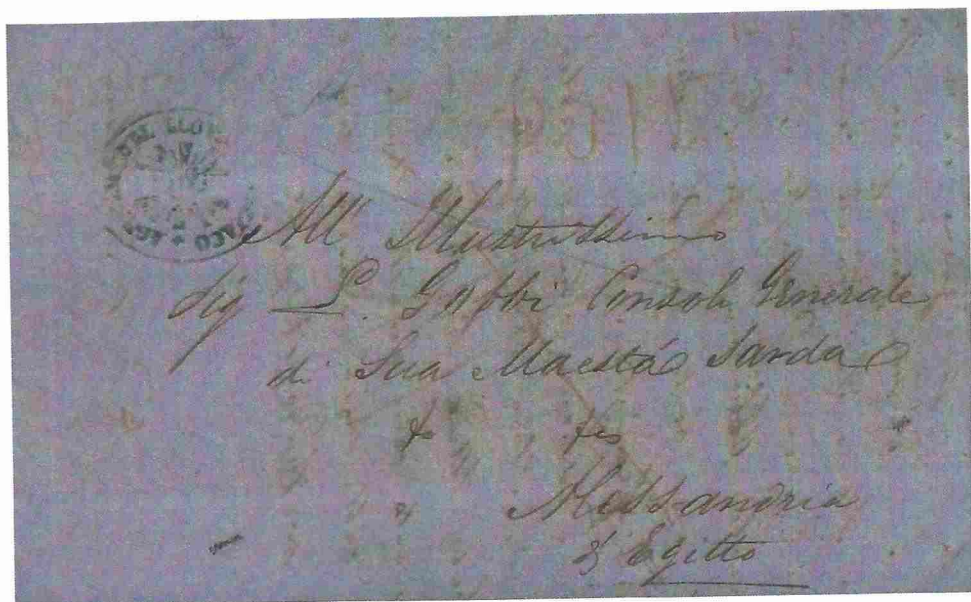 DEL LLOYD
All' Illustrissimo
Sig L. Gobbi Console Generale
di Sua Maestà Sarda
Alessandria
d'Egitto